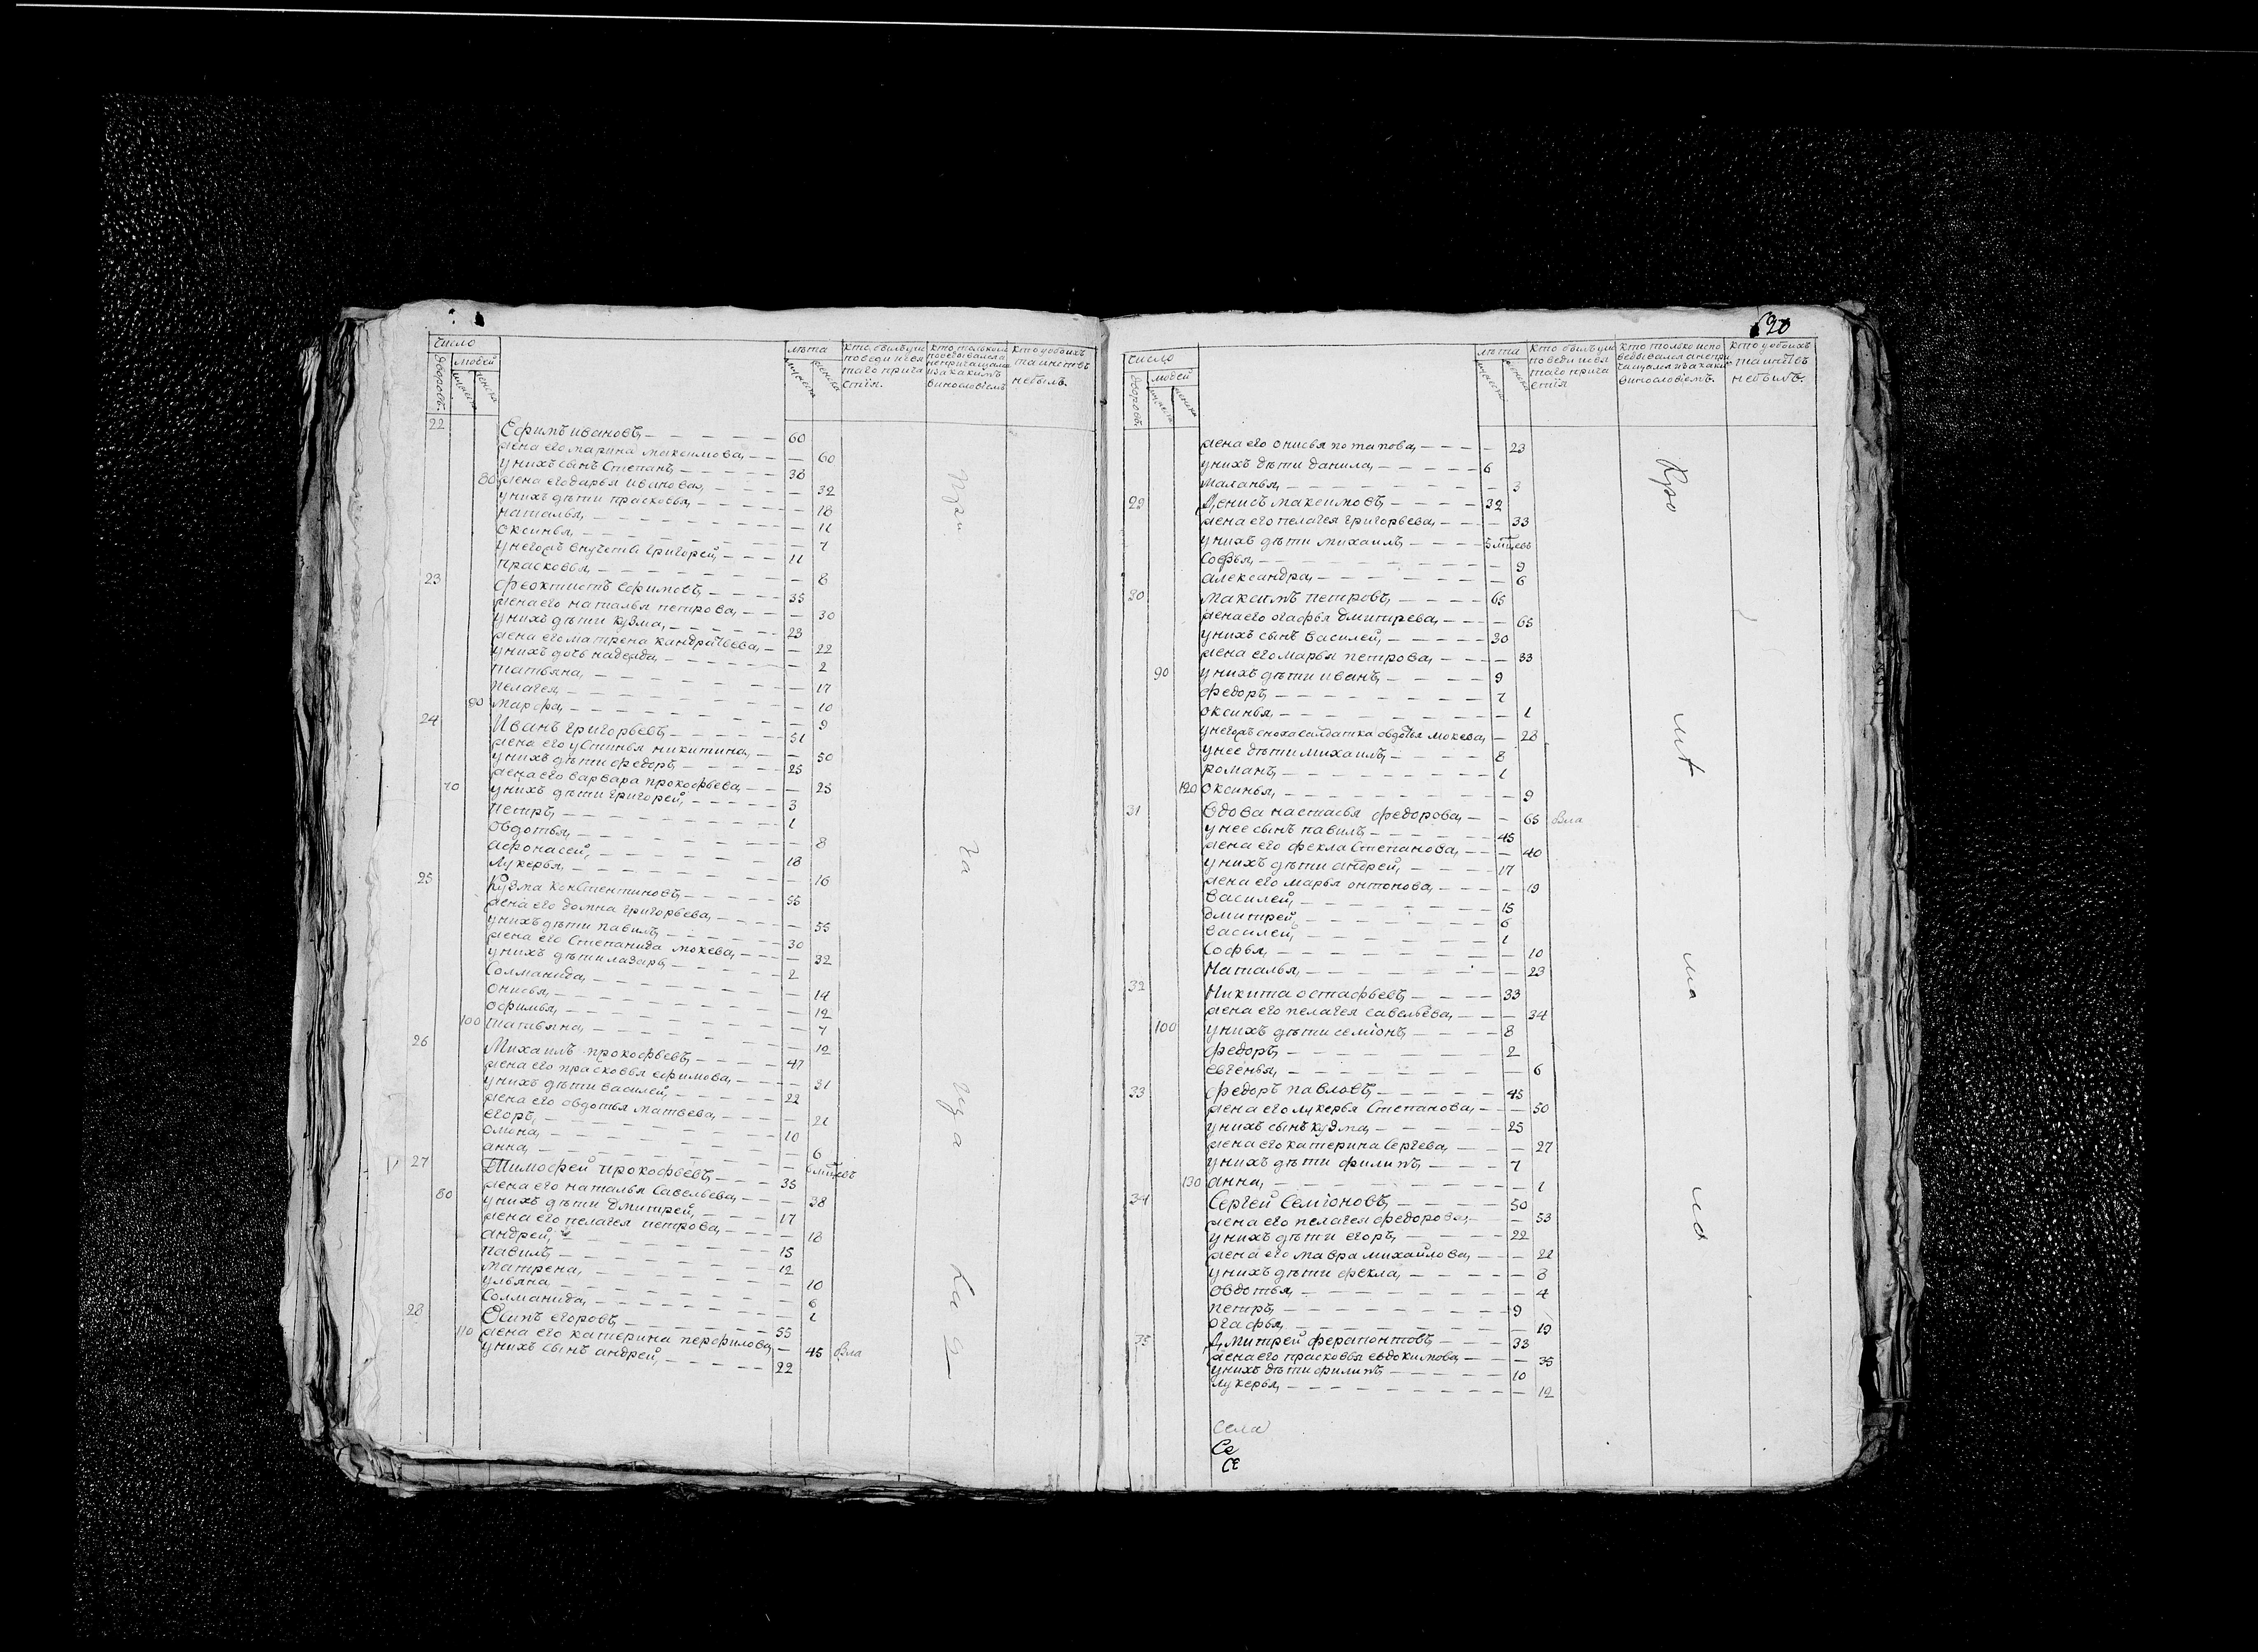 число
дворовъ
людей
мужеска
женска
лѣта
мужеска
женска
кто былъ у ис
поведи и свя
таго прича
стїя.
кто только ис
поведывался а
непричащался
и за какимъ
винословїемъ
кто у обоихъ
таинствъ
небылъ.
22 Ефимъ ивановъ 60
жена его марина максимова 60
у нихъ сынъ Степанъ 38
80 жена его дарья иванова 32
у нихъ дѣти прасковья 18
наталья 11
оксинья 7
у негожъ внучета григорей 11
прасковья 8
23 феоктистъ ефимовъ 35
жена его наталья петрова 30
у нихъ дѣти кузма 23
жена его матрена кандратьева 22
у нихъ дочь надежда 2
татьяна 17
пелагея 10
90 марфа 9
24 Иванъ григорьевъ 51
жена его устинья никитина 50
у нихъ дѣти федоръ 25
жена его варвара прокофьева 25
70 у нихъ дѣти григорей 3
петръ 1
овдотья 8
афонасей 18
лукерья 16
25 кузма констентиновъ 55
жена его домна григорьева 55
у нихъ дѣти павилъ 30
жена его степанида мокева 32
у нихъ дѣти лазарь 2
Соломанида 14
онисья 12
офимья 7
100 татьяна 12
26 Михаилъ прокофьевъ 47
жена его прасковья ефимова 31
у нихъ дѣти василей 22
жена его овдотья матвеева 21
егоръ 10
олюна 6
анна 6 мцсвъ
27 Тимофей прокофьевъ 35
жена его наталья савельева 38
80 у нихъ дѣти дмитрей 17
жена его пелагея петрова 18
андрей 15
павилъ 12
матрена 10
ульяна 6
Соломанида 1
28 Осипъ егоровъ 55
110 жена его катерина перфилова 45 Вла
у нихъ сынъ андрей 22
число
дворовъ
людей
мужеска
женска
лѣта
мужеска
женска
кто былъ у ис
поведи и свя
таго прича
стїя
кто только испо
ведывался а непри
чащался и за каки
винословїемъ.
кто у обоихъ
таинствъ
небылъ.
жена его онисья потапова 23
у нихъ дѣти данила 6
маланья 3
29 Денисъ максимовъ 32
жена его пелагея григорьева 33
у нихъ дѣти михаилъ 5 мцсвъ
софья 9
александра 6
30 максимъ петровъ 65
жена его огафья дмитрева 65
у нихъ сынъ василей 30
жена его марья петрова 33
90 у нихъ дѣти иванъ 9
федоръ 7
оксинья 1
у негожъ сноха салдатка овдотья мокева 28
у нее дѣти михаилъ 8
романъ 1
120 оксинья 9
31 Вдова настасья федорова 65 Вла
у нее сынъ павилъ 45
жена его фекла степанова 40
у нихъ дѣти андрей 17
жена его марья онтонова 19
василей 15
дмитрей 6
василей 1
софья 10
Наталья 23
32 Никита остафьевъ 33
жена его пелагея савельева 34
100 у нихъ дѣти семїонъ 8
федоръ 2
евгенья 6
33 федоръ павловъ 45
жена его лукерья степанова 50
у нихъ сынъ кузма 25
жена его катерина сергева 27
у нихъ дѣти филипъ 7
130 анна 1
34 Сергей Семїоновъ 50
жена его пелагея федорова 53
у нихъ дѣти егоръ 22
жена его мавра михайлова 22
у нихъ дѣти фекла 3
овдотья 4
петръ 9
огафья 19
35 Дмитрей ферапонтовъ 33
жена его прасковья евдокимова 35
у нихъ дѣти филипъ 10
лукерья 12
Села
Се
СЕ